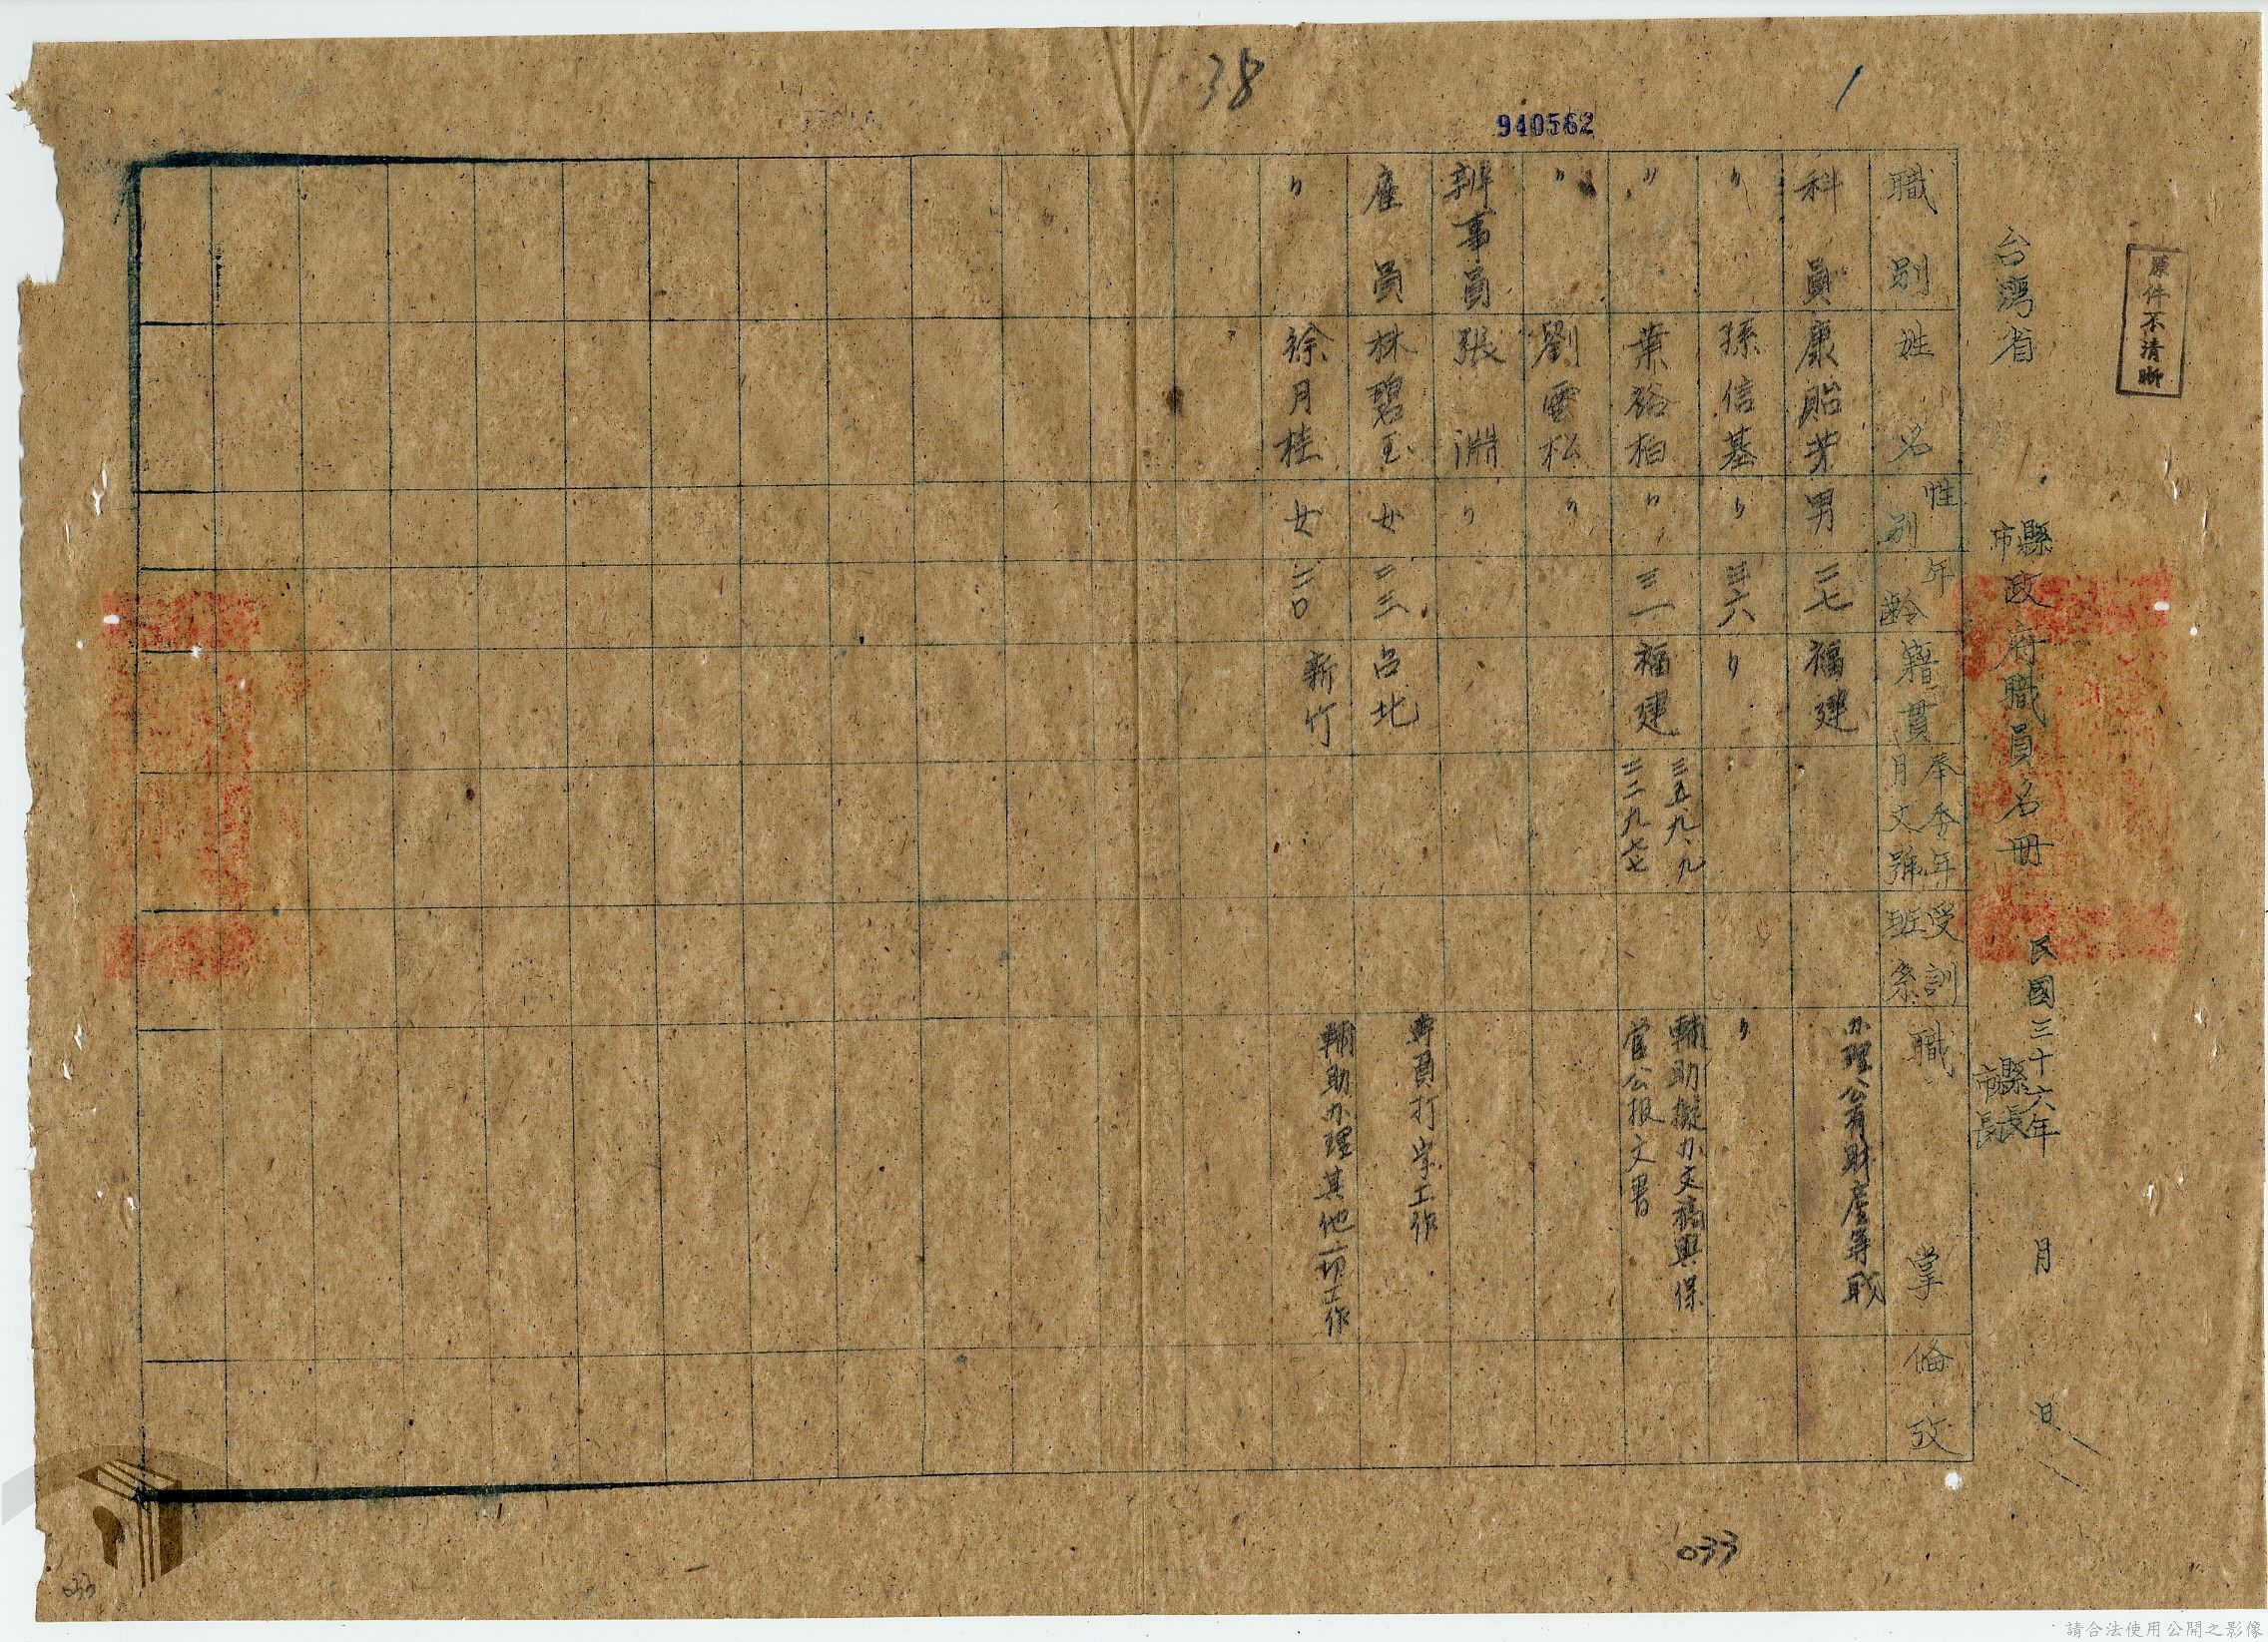 38
940562
原件不清晰
台湾省 縣市政府職員名冊 民國三十六年 月 日
縣市長
職別 姓名 性別 年齡 籍貫 奉委年月文號 受訓班系 職掌 俻攷
科員 康貽芳 男 二七 福建 办理公有財產等职
〃 孫信基 〃 三六 〃 〃
〃 葉裕柏 〃 三一 福建 三五九、九 二二九七七 輔助擬办文稿與保官公报文書
〃 劉雲松 〃
辦事員 張淵 〃
雇員 林碧玉 女 二三 台北 專員打字工作
〃 徐月桂 女 二〇 新竹 輔助办理其他一切工作
033
033
請合法使用公開之影像